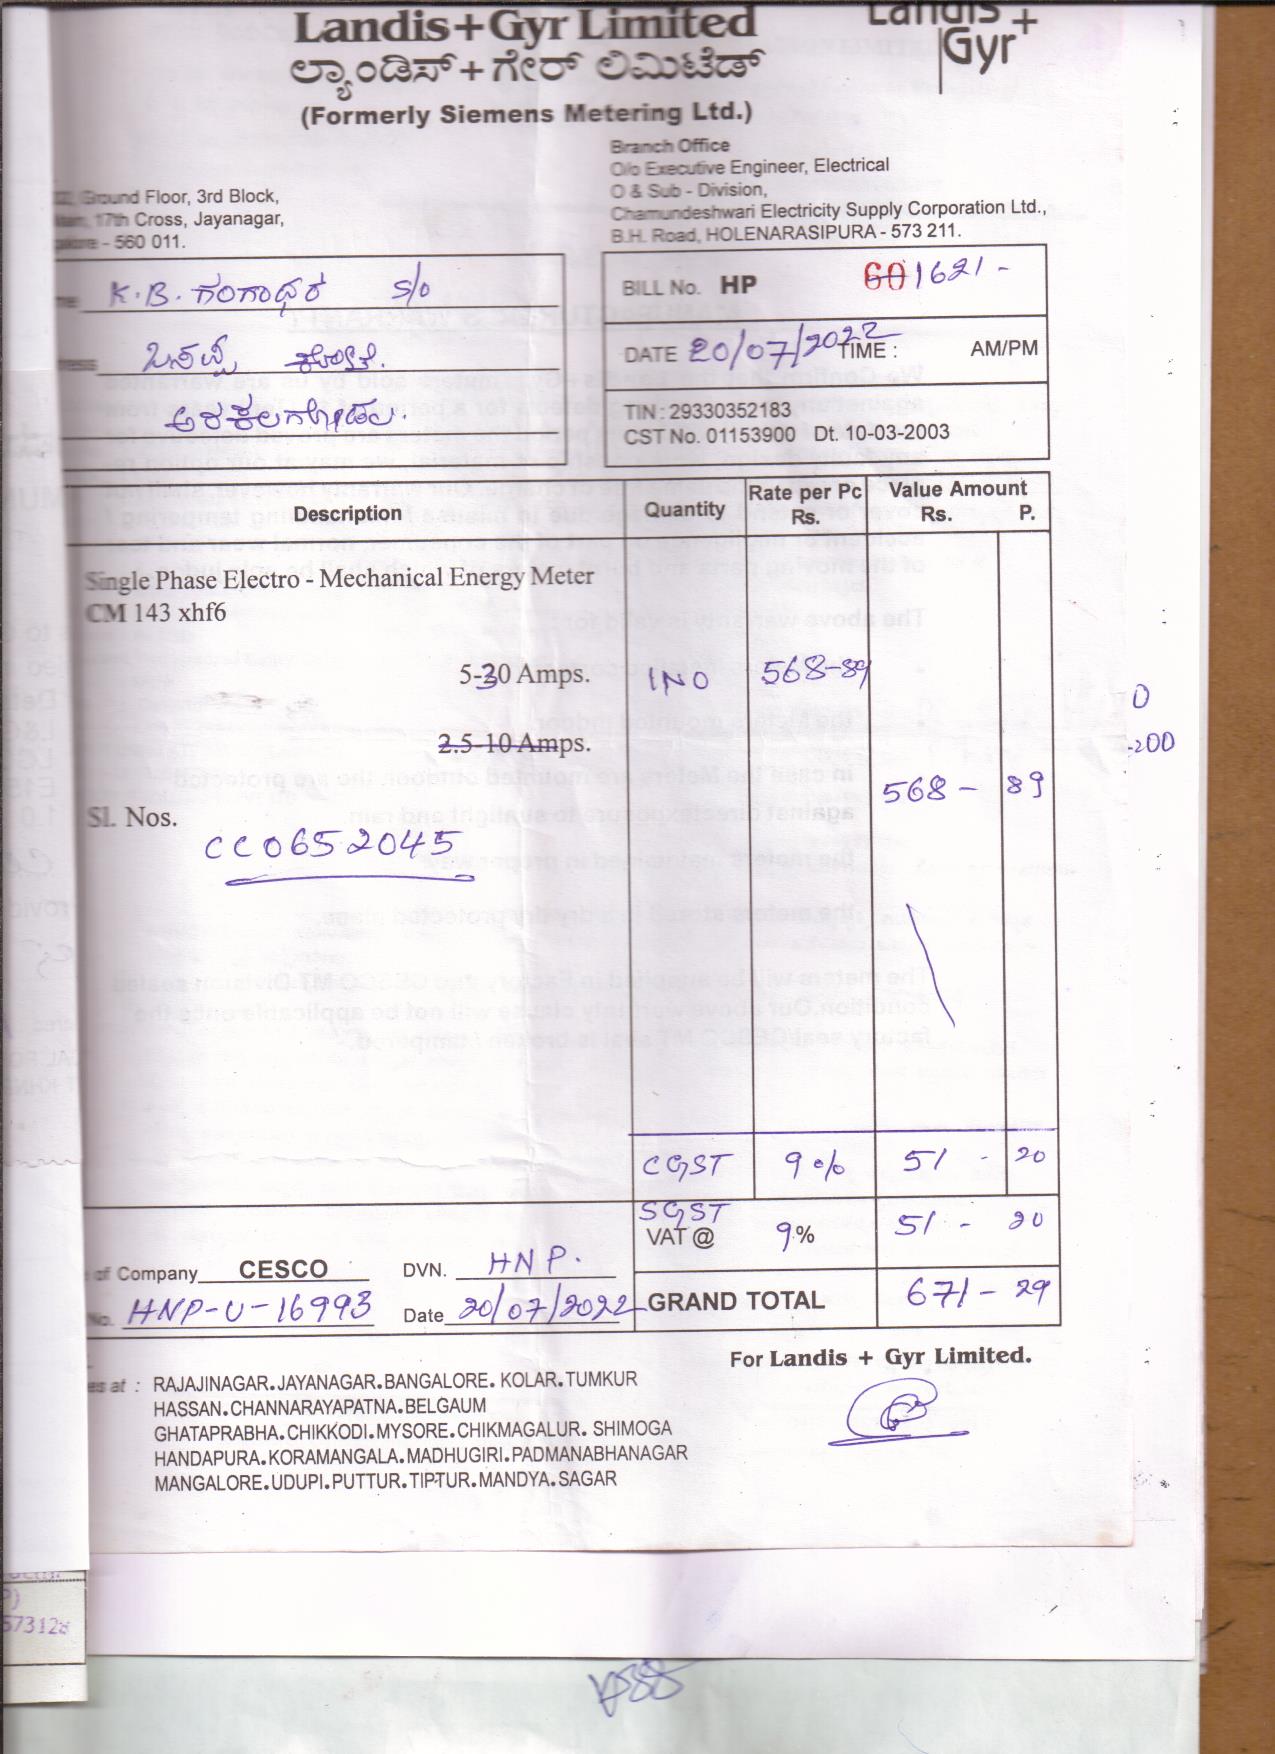 Landis+Gyr Limited
Landis
Gyr+
ಲ್ಯಾಂಡಿಸ್+ಗೇರ್ ಲಿಮಿಟೆಡ್
(Formerly Siemens Metering Ltd.)
Ground Floor, 3rd Block,
17th Cross, Jayanagar,
- 560 011.
Branch Office
O/o Executive Engineer, Electrical
O & Sub - Division,
Chamundeshwari Electricity Supply Corporation Ltd.,
B.H. Road, HOLENARASIPURA - 573 211.
K.B. ಗಂಗಾಧರ S/o
ಅರಕಲಗೂಡು.
BILL No. HP 601621-
DATE 20/07/2022 TIME : AM/PM
TIN : 29330352183
CST No. 01153900 Dt. 10-03-2003
Description Quantity Rate per Pc Rs. Value Amount Rs. P.
Single Phase Electro - Mechanical Energy Meter
CM 143 xhf6
5-30 Amps. 1NO 568-89
2.5-10 Amps.
568 - 89
Sl. Nos.
CC0652045
0
-200
CGST 9% 51 - 20
SGST
VAT @ 9.% 51 - 20
of Company CESCO DVN. HNP.
No. HNP-U-16993 Date 20/07/2022
GRAND TOTAL 671-29
For Landis + Gyr Limited.
es at : RAJAJINAGAR.JAYANAGAR.BANGALORE. KOLAR.TUMKUR
HASSAN.CHANNARAYAPATNA.BELGAUM
GHATAPRABHA.CHIKKODI.MYSORE.CHIKMAGALUR. SHIMOGA
HANDAPURA.KORAMANGALA.MADHUGIRI.PADMANABHANAGAR
MANGALORE.UDUPI.PUTTUR.TIPTUR.MANDYA.SAGAR
573128